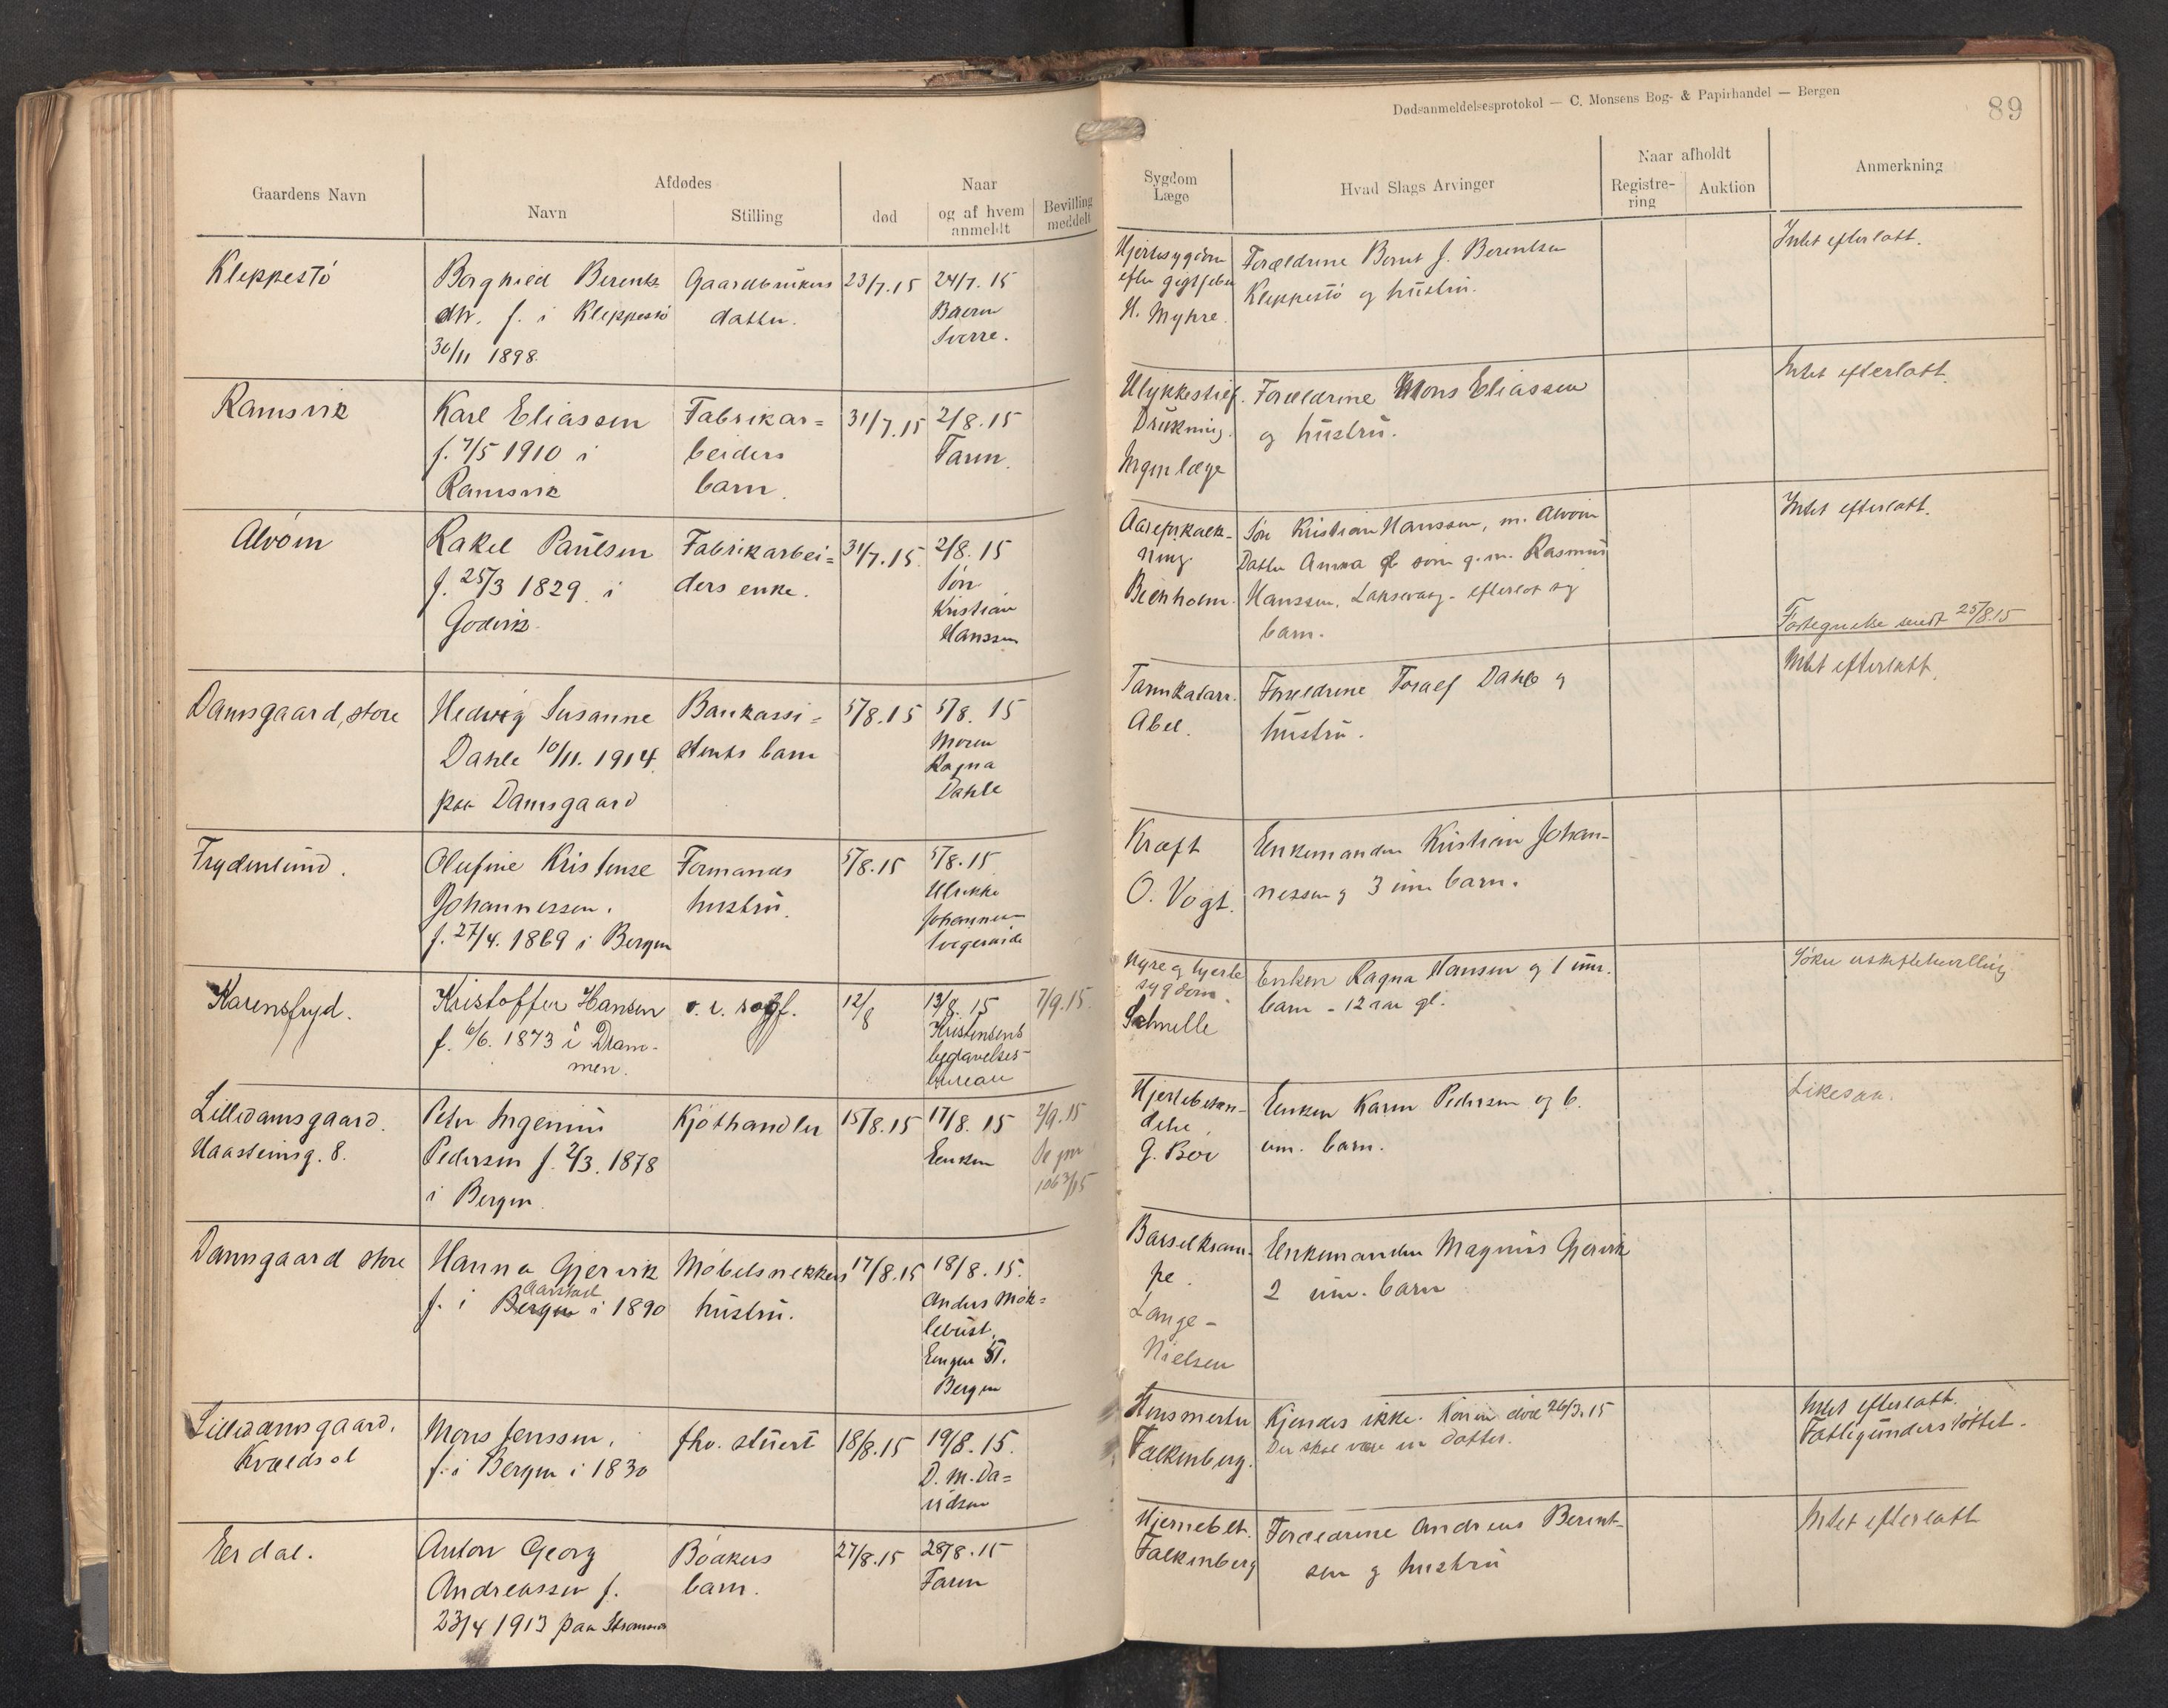 Dødsanmeldelsesprotokol — C. Monsens Bog- & Papirhandel — Bergen
89
Gaardens Navn
Afdødes
Navn
Stilling
død
Naar
og af hvem
anmeldt
Bevilling
meddelt
Sygdom
Læge
Hvad Slags Arvinger
Naar afholdt
Registre-
ring
Auktion
Anmerkning
Kleppestö
Borghild Berents
dtr. f. i Kleppestö
30/11 1898
Gaardbrukers
datter.
23/7.15
24/7.15
Baern
Sverre.
Hjertesygdom
efter gigtfeber
H. Myhre.
Forældrene Bernt J. Berentsen
Kleppestö og hustru.
Intet efterlatt.
Ramsvik
Karl Eliassen
f. 7/5 1910 i
Ramsvik
Fabrikar=
beiders
barn.
31/7.15
2/8.15
Faren.
Ulykkestilf.
Drukning.
Ingen læge
Forældrene Mons Eliassen
og hustru.
Intet efterlatt.
Alvöen
Rakel Paulsen
f. 25/3 1829 i
Godvik.
Fabrikarbei=
ders enke.
31/7.15.
2/8.15
Sön
Kristian
Hanssen
Aareforkalk-
ning
Bienholm.
Sön Kristian Hanssen, m. Alvöen
Datter Anna som g.m. Rasmus
Hanssen, Laksevaag - efterlot sig
barn.
Intet efterlatt.
Fortegnelse sendt 25/8.15
Damsgaard, store
Hedvig Susanne
Dahle 10/11. 1914
paa Damsgaard
Bankassi=
stents barn
5/8.15
5/8.15
Moren
Ragna
Dahle
Tarmkatarr.
Abel.
Forældrene Toralf Dahle og
hustru.
Intet efterlatt.
Frydenlund.
Olufine Kristense
Johannessen.
f. 27/4. 1869 i Bergen
Formands
hustru.
5/8.15
5/8.15
Ulrikke
Johannesen
Kræft
O. Vogt.
Enkemanden Kristian Johan-
nessen og 3 um. barn.
Karensfryd.
Kristoffer Hansen
f. 6/6. 1873 i Dram-
men.
12/8
13/8.15
Kristensens
begravelses-
bureau
7/9.15.
Nyre og hjerte
sygdom.
Schnelle
Enken Ragna Hansen og 1 um.
barn - 12 aar gl.
Söker uskiftebevilling
Lilledamsgaard.
Haasteinsg. 8.
Peter Ingemui
Pedersen f. 2/3. 1878
i Bergen
Kjöthandler
15/8.15
17/8.15
Enken
2/9.15
Hjertebetæn-
delse.
G. Böe
Enken Karen Pedersen og 6.
um. barn.
Likesaa.
Damsgaard store
Hanna Gjervik
Aarstad
f. i Bergen i 1890
Möbelsnekkers
hustru.
17/8.15
18/8.15.
Anders Mök=
lebust,
Engen 51.
Bergen
Barselkram-
pe.
Lange-
Nielsen
Enkemanden Magnus Gjervik
2 um. barn
Lilledamsgaard.
Kvældsol
Mons Jenssen.
f. i Bergen i 1830
fhv. stuert
18/8.15
19/8.15.
D. M. Da=
vidsen
Falkenberg.
Kjendes ikke. Konen död 26/3.15
Der skal være en datter.
Intet efterlatt.
Fattigunderstöttet.
Erdal.
Anton Georg
Andreassen f.
23/4 1913 paa Strömmen
Bödkers
barn.
27/8.15
28/8.15
Faren
Hjernebet.
Falkenberg
Forældrene Andreas Berent-
sen og hustru
Intet efterlatt